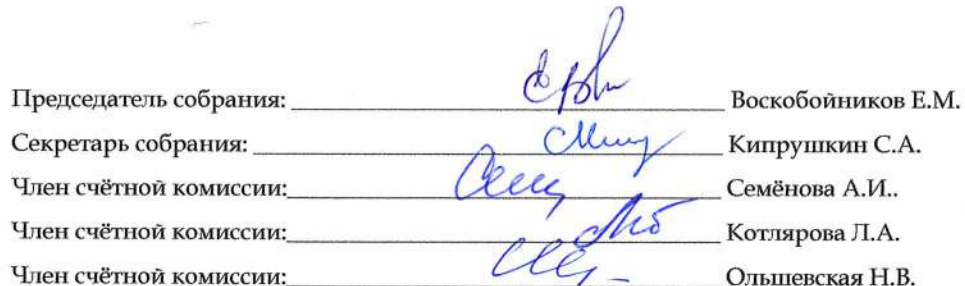 Председатель собрания: Воскобойников Е.М.
Секретарь собрания: Кипрушкин С.А.
Член счётной комиссии: Семёнова А.И..
Член счётной комиссии: Котлярова Л.А.
Член счётной комиссии: Ольшевская Н.В.